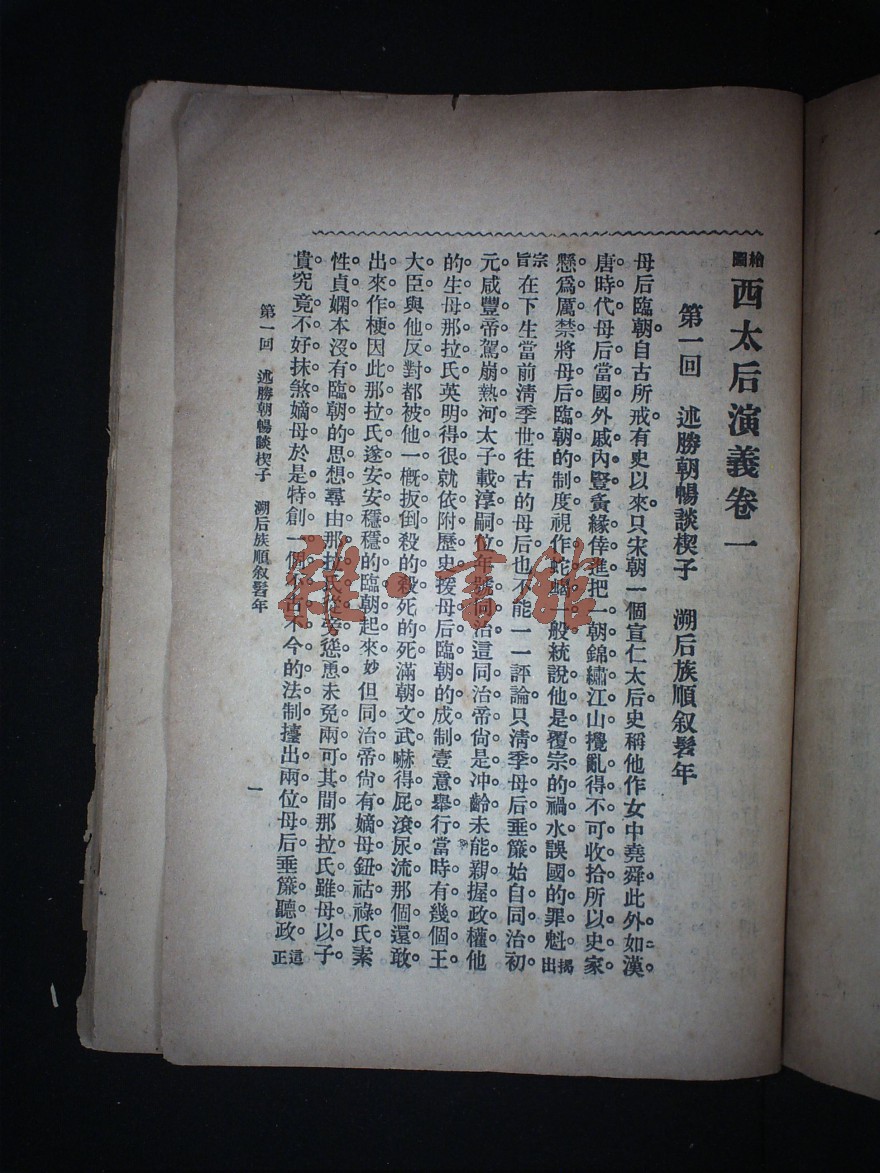 繪圖西太后演義卷一
第一回 述勝朝暢談楔子 溯后族順叙髫年
母后臨朝自古所戒有史以來只宋朝一個宣仁太后史稱他作女中堯舜此外如漢
唐時代母后當國外戚內豎夤緣倖進把一朝錦繡江山攪亂得不可收拾所以史家
懸爲厲禁將母后臨朝的制度視作蛇蝎一般統說他是覆宗的禍水誤國的罪魁揭出
宗旨在下生當前淸季世往古的母后也不能一一評論只淸季母后垂簾始自同治初
元咸豐帝駕崩熱河太子載淳嗣位年號同治這同治帝尙是冲齡未能親握政權他
的生母那拉氏英明得很就依附歷史援母后臨朝的成制壹意舉行當時有幾個王
大臣與他反對都被他一槪扳倒殺的殺死的死滿朝文武嚇得屁滾尿流那個還敢
出來作梗因此那拉氏遂安安穩穩的臨朝起來妙但同治帝尙有嫡母鈕祜祿氏素
性貞嫻本沒有臨朝的思想尋由那拉氏從旁慫恿未免兩可其間那拉氏雖母以子
貴究竟不好抹煞嫡母於是特創一個不古不今的法制擡出兩位母后垂簾聽政這正
第一回 述勝朝暢談楔子 溯后族順叙髫年
一
雜·書館